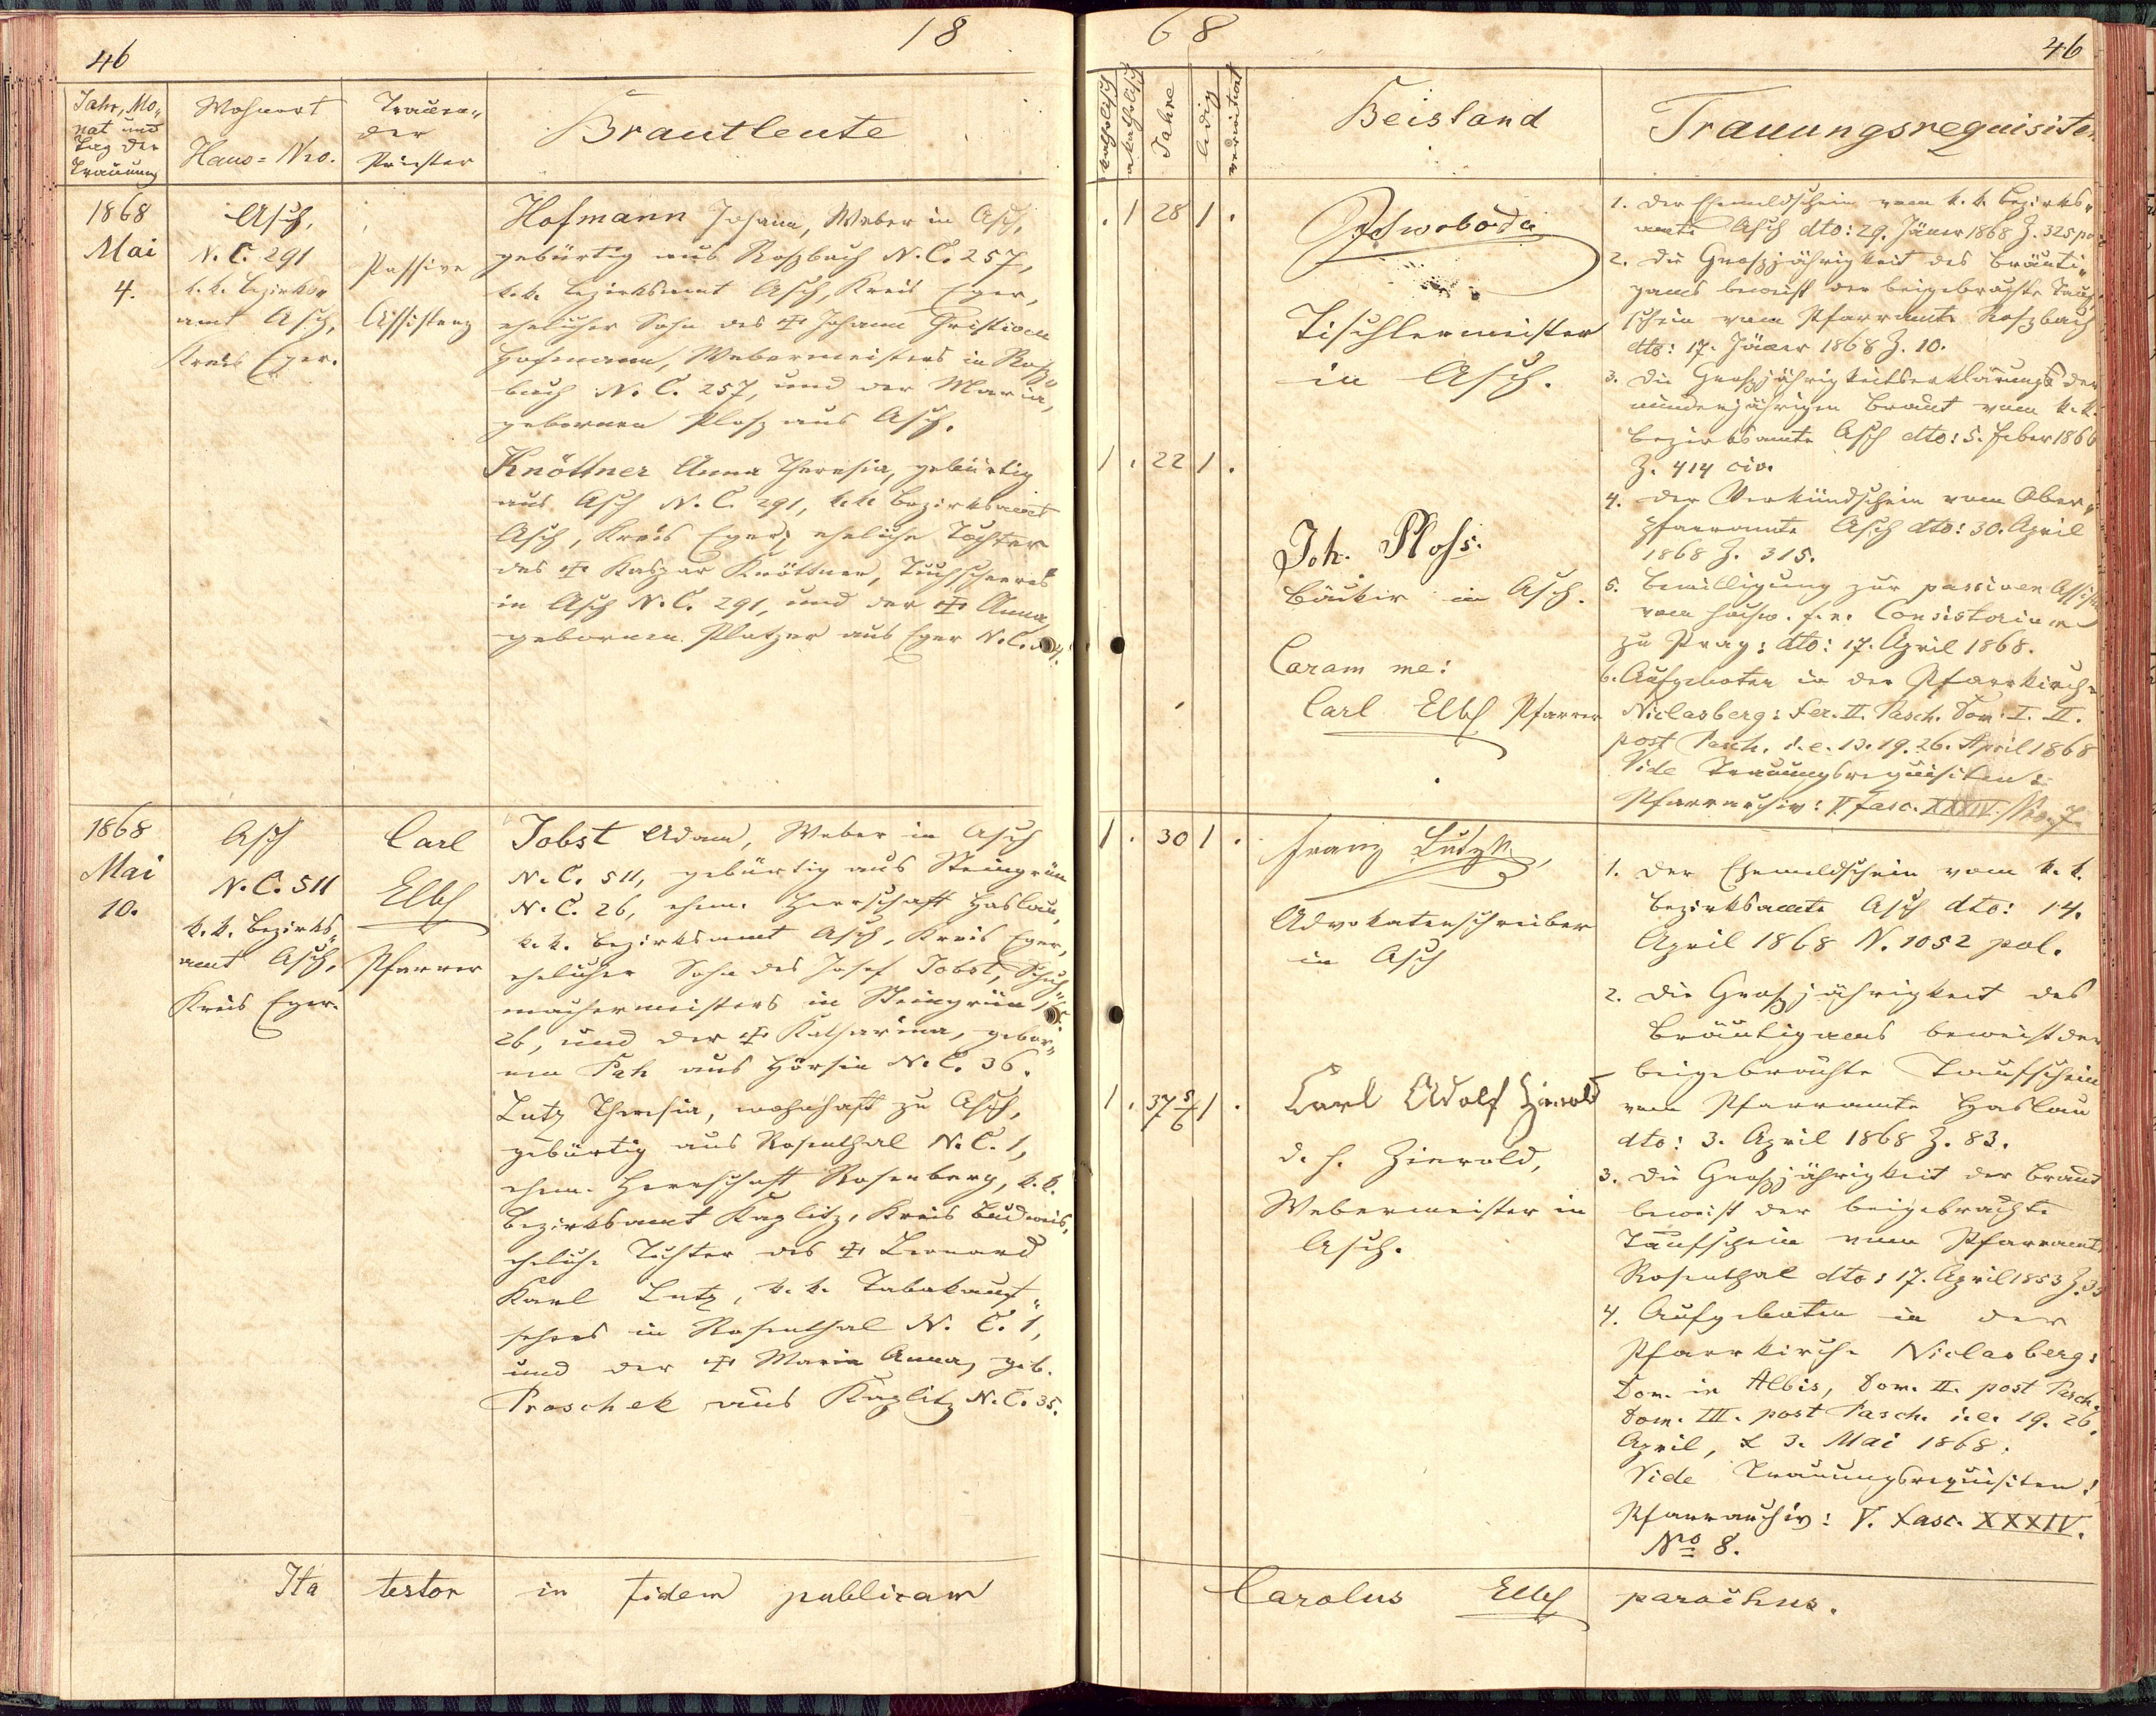 46
18
Jahr, Mo-
nat und
Tag der
Trauung
Wohnort
Haus-Nro.
Trauen-
der
Priester
Brautleute
1868
Mai
4.
Asch,
N. C. 291
k. k. Bezirks-
amt Asch,
Kreis Eger.
Passive
Assistenz
Hofmann Johann, Weber in Asch,
gebürtig aus Roßbach N. C. 257,
k. k. Bezirksamt Asch, Kreis Eger,
ehelicher Sohn des ✝ Johann Christian
Hofmann, Webermeisters in Roß-
bach N. C. 257, und der Maria,
gebornen Ploß aus Asch.
Knöttner Anna Theresia, gebürtig
aus Asch N. C. 291, k. k. Bezirksamt
Asch, Kreis Eger, eheliche Tochter
des ✝ Kaspar Knöttner, Tuchscherers
in Asch N. C. 291, und der ✝ Anna,
gebornen Platzer aus Eger N. C.
1868
Mai
10.
Asch
N. C. 511
k. k. Bezirks-
amt Asch,
Kreis Eger.
Carl
Elbl
Pfarrer
Jobst Adam, Weber in Asch
N. C. 511, gebürtig aus Steingrün
N. C. 26, ehem. Herrschaft Haslau,
k. k. Bezirksamt Asch, Kreis Eger,
ehelicher Sohn des Josef Jobst, Schuh-
machermeisters in Steingrün
26, und der ✝ Katharina, gebor-
nen Pah aus Hörsin N. C. 36.
Lutz Theresia, wohnhaft zu Asch,
gebürtig aus Rosenthal N. C. 1,
ehem. Herrschaft Rosenberg, k. k.
Bezirksamt Kaplitz, Kreis Budweis,
eheliche Tochter des ✝ Leonard
Karl Lutz, k. k. Tabakauf-
sehers in Rosenthal N. C. 1,
und der ✝ Maria Anna, geb.
Proschek aus Kaplitz N. C. 35.
Ita testor in fidem publicam
68
46
katholisch
akatholisch
Jahre
ledig
verwitwet
Beistand
Trauungsrequisiten
. 1 28 1 .
Schwoboda
Tischlermeister
in Asch.
1 . 22 1 .
Joh. Ploss.
Bäcker in Asch.
Coram me:
Carl Elbl Pfarrer
1. Der Ehemeldschein vom k. k. Bezirks-
amte Asch dto: 29. Jäner 1868 Z. 325 po
2. Die Großjährigkeit des Bräuti-
gams beweist der beigebrachte Tauf-
schein vom Pfarramte Roßbach
dto: 17. Jäner 1868 Z. 10.
3. Die Großjährigkeitserklärung der
minderjährigen Braut vom k. k.
Bezirksamte Asch dto: 5. Feber 1866
Z. 414 civ.
4. Der Verkündschein vom Ober-
pfarramte Asch dto: 30. April
1868 Z. 315.
5. Bewilligung zur passiven Assist
vom hochw. f. e. Consistorium
zu Prag: dto: 17. April 1868.
6. Aufgeboten in der Pfarrkirche
Niclasberg: Fer. II. Pasch. Dom. I. II.
post Pasch. i. e. 13. 19. 26. April 1868
Vide Trauungsrequisiten:
Pfarrarchiv: V. fasc. XXXIV. Nro. 7.
1 . 30 1 .
Franz
Advokatenschreiber
in Asch
1 . 37 5/6 1 .
Carl Adolf Zierold
d. h. Zierold,
Webermeister in
Asch.
1. Der Ehemeldschein vom k. k.
Bezirksamte Asch dto: 14.
April 1868 N. 1052 pol.
2. Die Großjährigkeit des
Bräutigams beweist der
beigebrachte Taufschein
vom Pfarramte Haslau
dto: 3. April 1868 Z. 83.
3. Die Großjährigkeit der Braut
beweist der beigebrachte
Taufschein vom Pfarramt
Rosenthal dto: 17. April 1853 Z. 33
4. Aufgeboten in der
Pfarrkirche Niclasberg:
Dom. in Albis, Dom. II. post Pasch.
Dom. III. post Pasch. i. e. 19. 26.
April, & 3. Mai 1868.
Vide Trauungsrequisiten!
Pfarrarchiv: V. fasc. XXXIV.
No 8.
Carolus Elbl parochus.